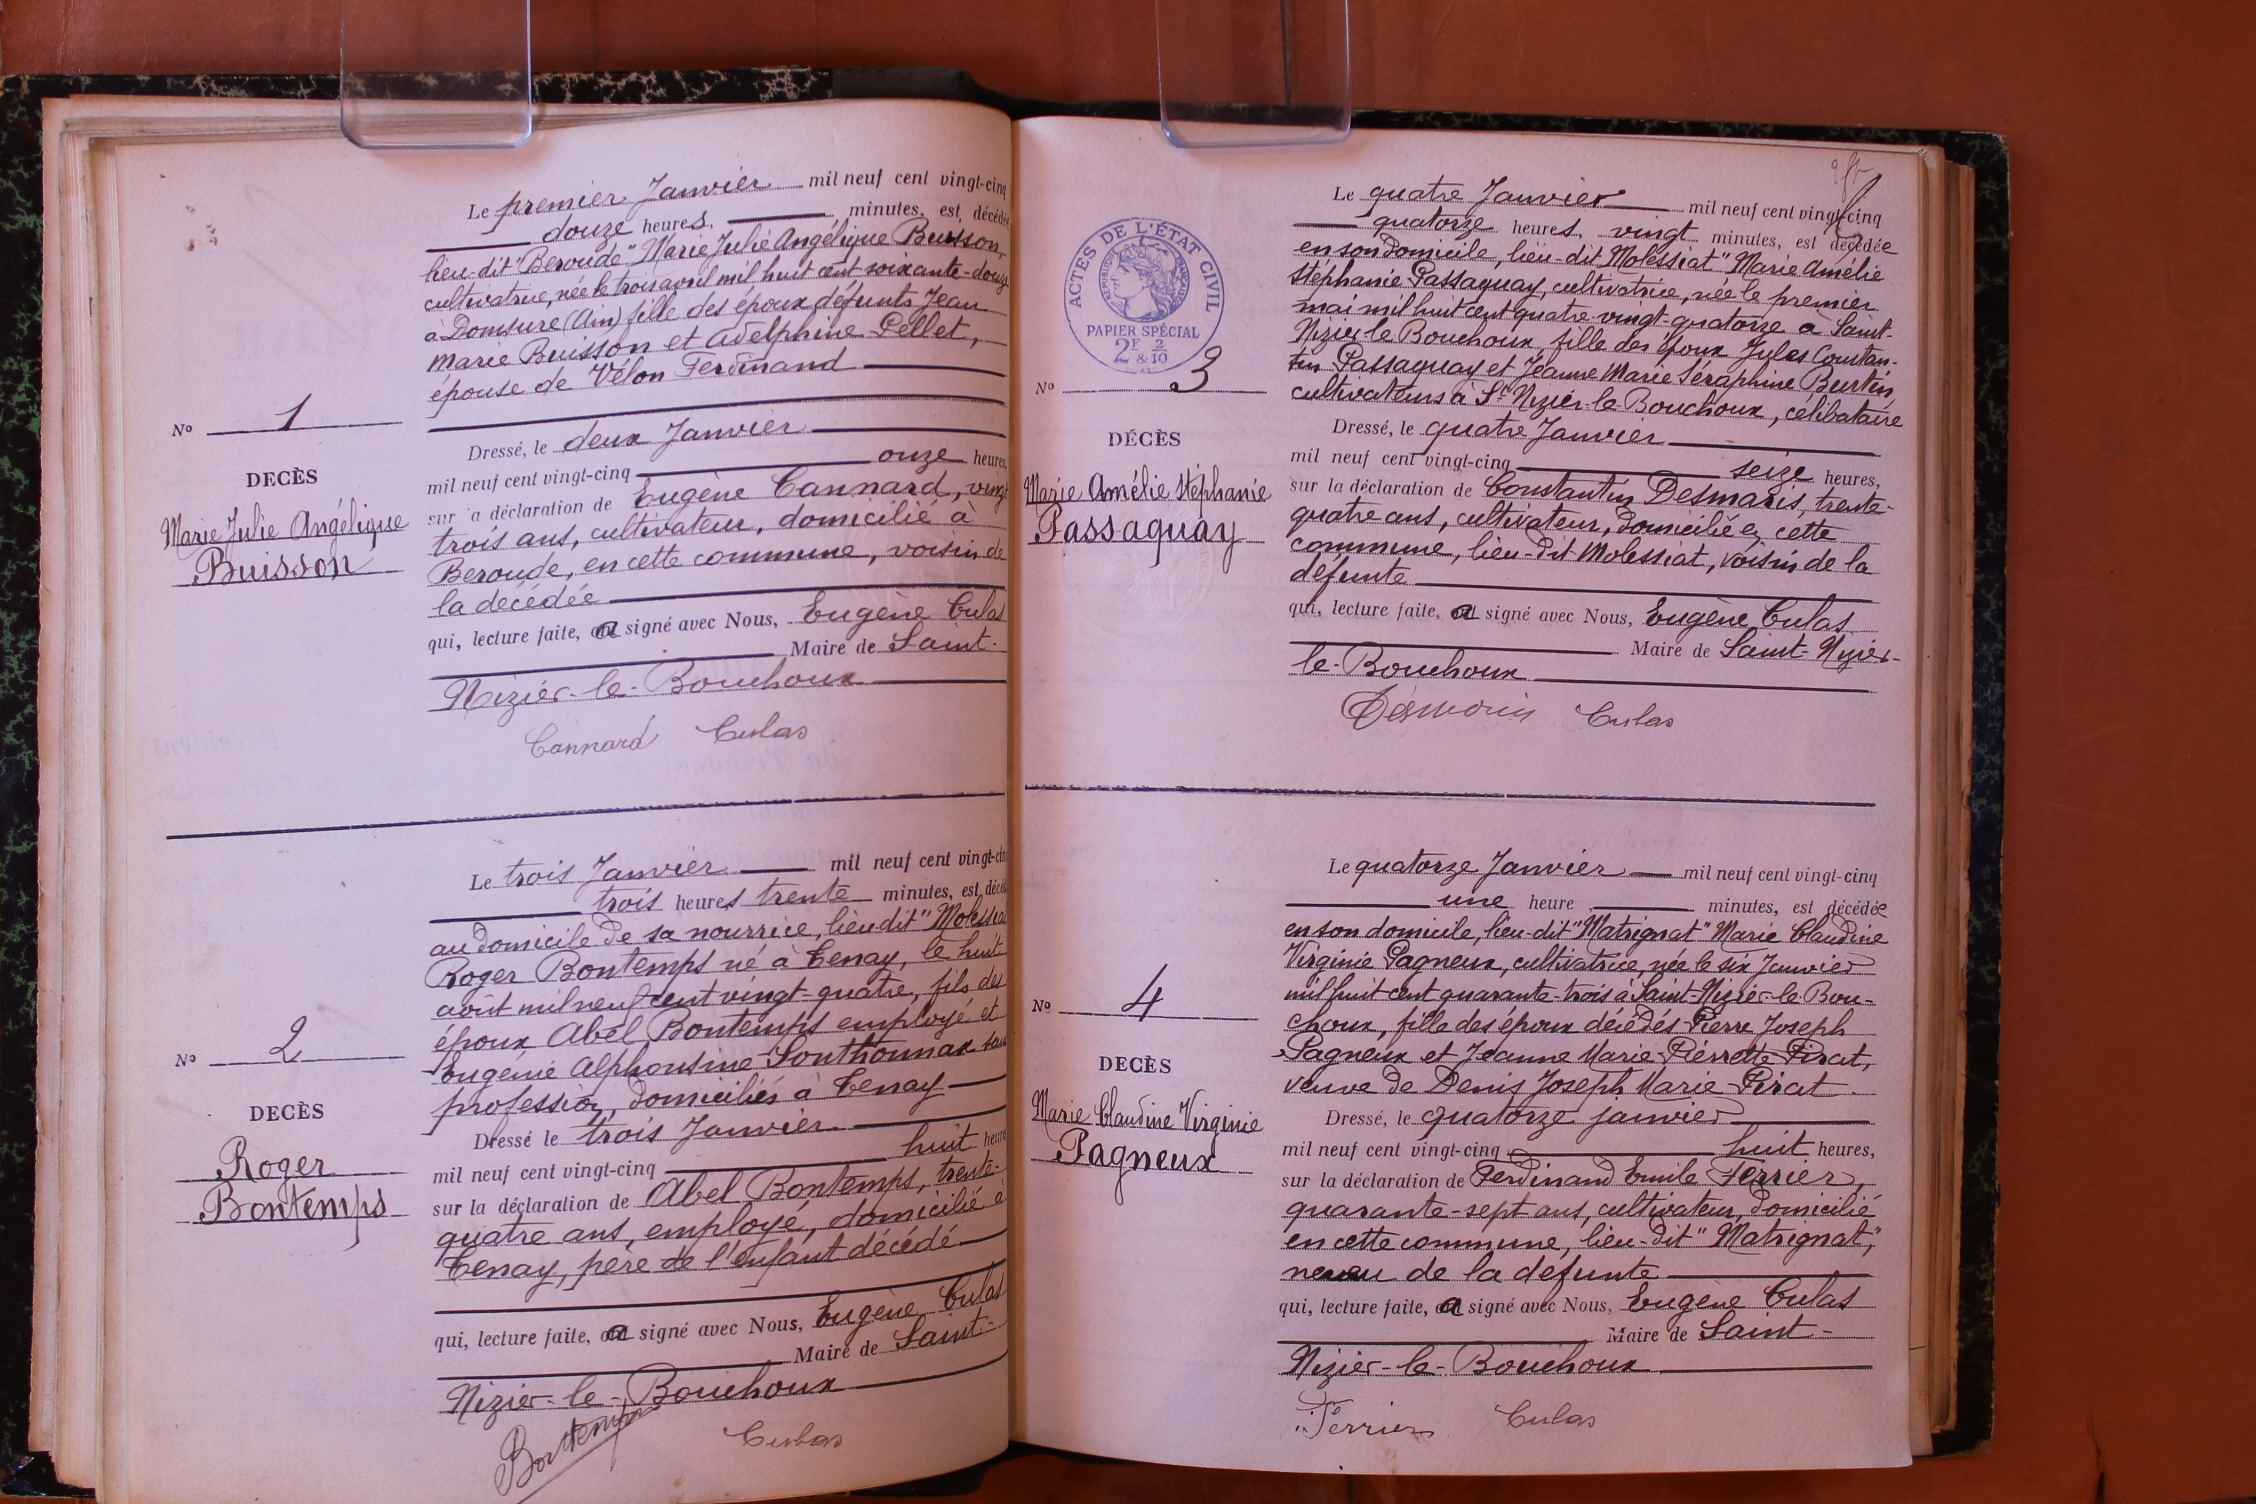 Le premier Janvier mil neuf cent vingt-cinq
douze heures, minutes, est décédée
lieu-dit "Beroude" Marie Julie Angélique Buisson,
cultivatrice, née le trois avril mil huit cent soixante-douze
à Domsure (Ain) fille des époux défunts Jean
Marie Buisson et Adelphine Pellet,
épouse de Vélon Ferdinand
No 1
DECÈS
Marie Julie Angélique
Buisson
Dressé, le deux Janvier
mil neuf cent vingt-cinq onze heures,
sur la déclaration de Eugène Cannard, vingt
trois ans, cultivateur, domicilié à
Beroude, en cette commune, voisin de
la décédée
qui, lecture faite, a signé avec Nous, Eugène Culas
Maire de Saint-
Nizier-le-Bouchoux
Cannard Culas
Le trois Janvier mil neuf cent vingt-cinq
trois heures trente minutes, est décédé
au domicile de sa nourrice, lieu dit "Molessiat
Roger Bontemps né à Tenay, le huit
août mil neuf cent vingt-quatre, fils des
époux Abel Bontemps employé et
Eugénie Alphonsine Southonnax sans
profession, domiciliés à Tenay
No 2
DECÈS
Roger
Bontemps
Dressé le trois Janvier
mil neuf cent vingt-cinq huit heures
sur la déclaration de Abel Bontemps, trente-
quatre ans, employé, domicilié à
Tenay, père de l'enfant décédé
qui, lecture faite, a signé avec Nous, Eugène Culas
Maire de Saint-
Nizier-le-Bouchoux
Bontemps Culas
ACTES DE L'ÉTAT CIVIL
RÉPUBLIQUE FRANÇAISE
PAPIER SPÉCIAL
2F & 2/10
Le quatre Janvier mil neuf cent vingt-cinq
quatorze heures, vingt minutes, est décédée
en son domicile, lieu-dit Molessiat" Marie Amélie
Stéphanie Passaquay, cultivatrice, née le premier
mai mil huit cent quatre-vingt-quatorze à Saint-
Nizier-le Bouchoux, fille des époux Jules Constan-
tin Passaquay et Jeanne Marie Séraphine Burtin,
cultivateurs à St Nizier-le-Bouchoux, célibataire
No 3
DÉCÈS
Marie Amélie Stéphanie
Passaquay
Dressé, le quatre Janvier
mil neuf cent vingt-cinq seize heures,
sur la déclaration de Constantin Desmaris, trente-
quatre ans, cultivateur, domicilié en cette
commune, lieu-dit Molessiat, voisin de la
défunte
qui, lecture faite, a signé avec Nous, Eugène Culas
Maire de Saint-Nizier-
le-Bouchoux
Desmaris Culas
Le quatorze Janvier mil neuf cent vingt-cinq
une heure minutes, est décédée
en son domicile, lieu-dit "Matrignat" Marie Claudine
Virginie Pagneux, cultivatrice, née le six Janvier
mil huit cent quarante-trois à Saint-Nizier-le-Bou-
choux, fille des époux décédés Pierre Joseph
Pagneux et Jeanne Marie Pierrette Pirat,
veuve de Denis Joseph Marie Pirat
No 4
DECÈS
Marie Claudine Virginie
Pagneux
Dressé, le quatorze janvier
mil neuf cent vingt-cinq huit heures,
sur la déclaration de Ferdinand Emile Ferrier,
quarante-sept ans, cultivateur, domicilié
en cette commune, lieu-dit "Matrignat",
neveu de la défunte
qui, lecture faite, a signé avec Nous, Eugène Culas
Maire de Saint-
Nizier-le-Bouchoux
Ferrier Culas